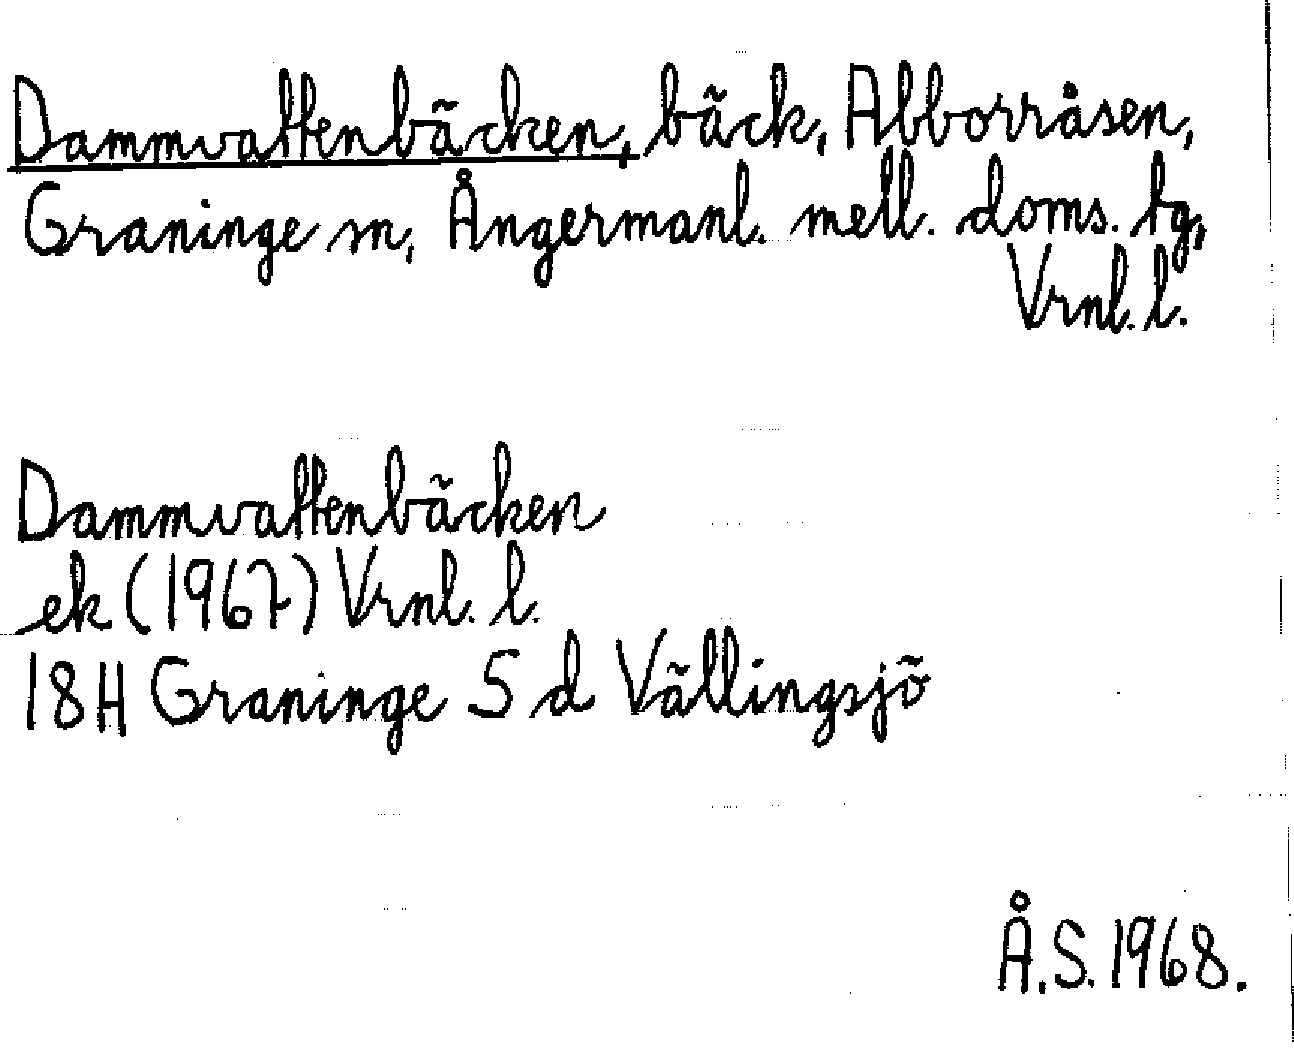 Dammvattenbäcken, bäck, Abborråsen,
Graninge sn, Ångermanl. mell. doms. tg,
Vrnl. l.
Dammvattenbäcken
ek (1967) Vrnl. l.
18H Graninge S d Vällingsjö
Å.S. 1968.